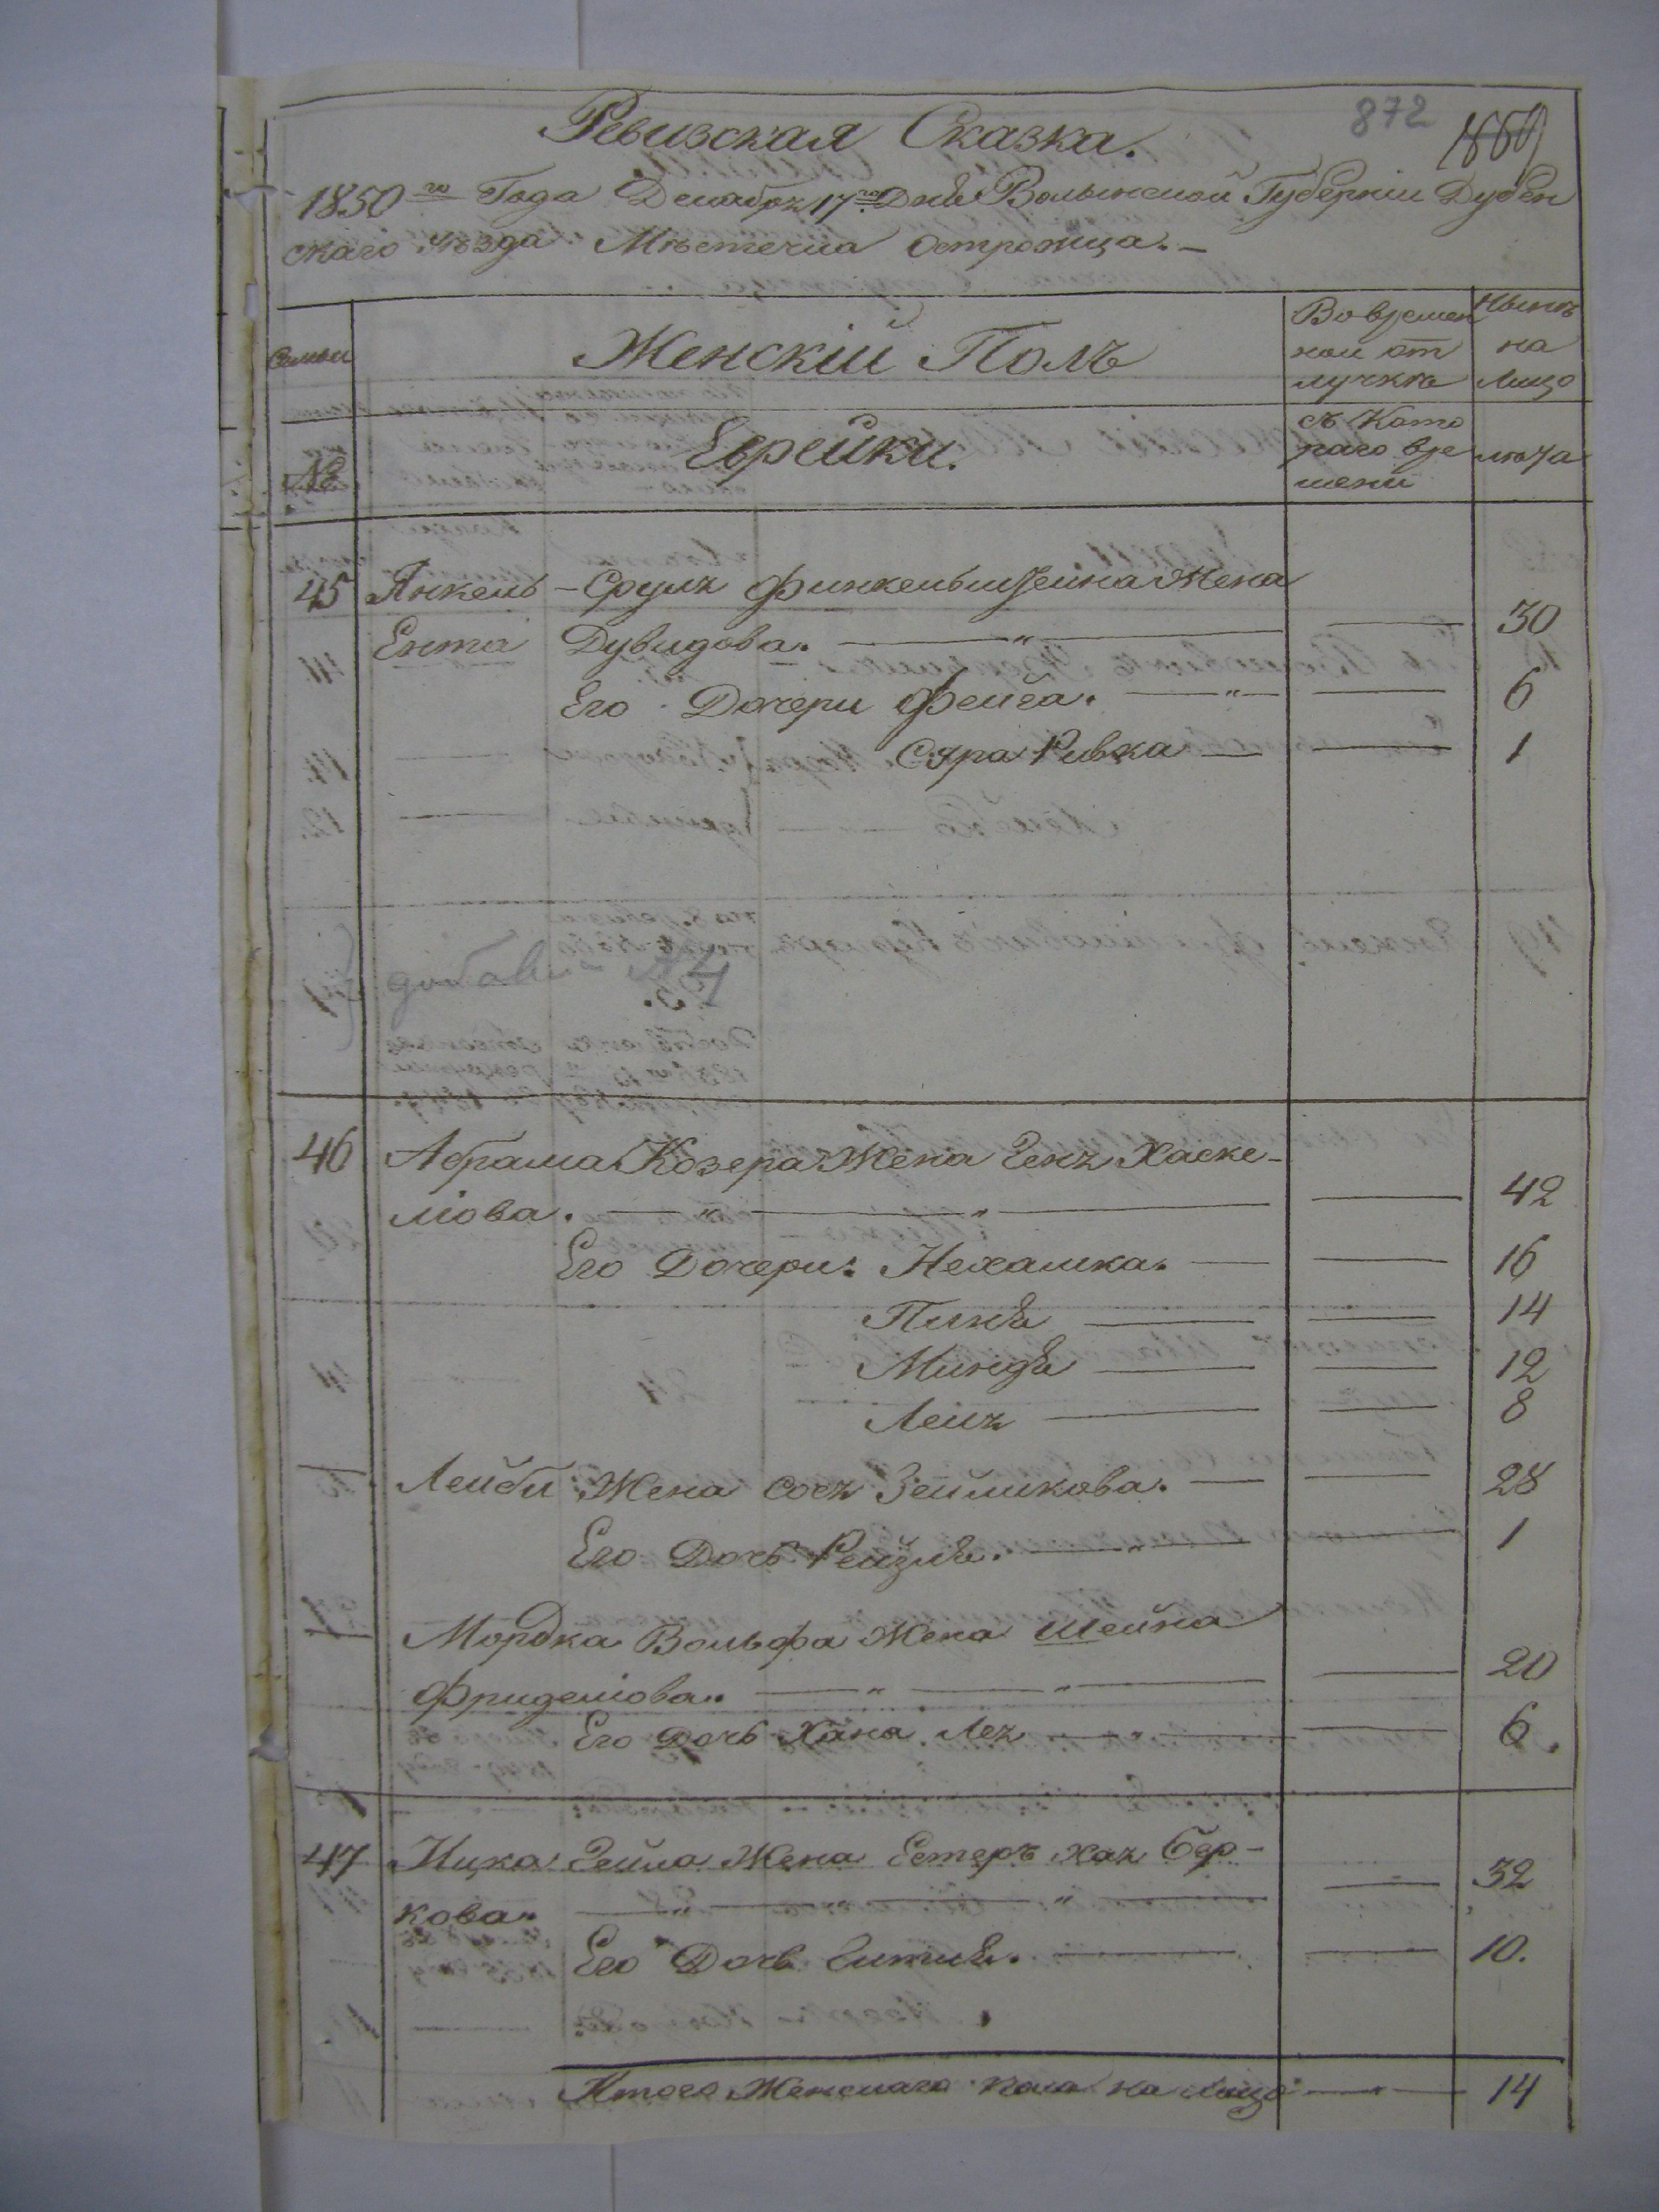 872
1869
Ревизская Сказка.
1850го Года Декабря 17го Дня Волынской Губерніи Дубен
скаго Уѣзда Мѣстечка Острожца.
Семьи
Женскій Полъ
Во времен
ной от
лучкѣ
Нынѣ
на
Лицо
№
Еврейки.
съ Кото
раго вре
мени
лѣта
45 Янкель-Сруля Финкельштейна Жена
Ента Дувидова. — „ — — 30
Его Дочери Фейга. — „ — — 6
Сура Ривка — — 1
добав № 4
46 Абрама Козера Жена Геня Хаске-
лiова. — „ — „ — — 42
Его Дочери: Нехамка. — — 16
Пинѣ — — 14
Миндѣ — — 12
Леия — — 8
Лейби Жена Сося Зейликова. — — 28
Его Дочь Рейзлѣ. — „ — — 1
Мордка Вольфа Жена Шейна
Фриделiова. — „ — „ — — 20
Его Дочь Хана Лея — „ — — 6.
47 Ицка Гейла Жена Естеръ Хая Бер-
кова. — „ — „ — — 32
Его Дочь Ентлѣ. — — 10.
Итого Женскаго пола на лицо — „ — 14